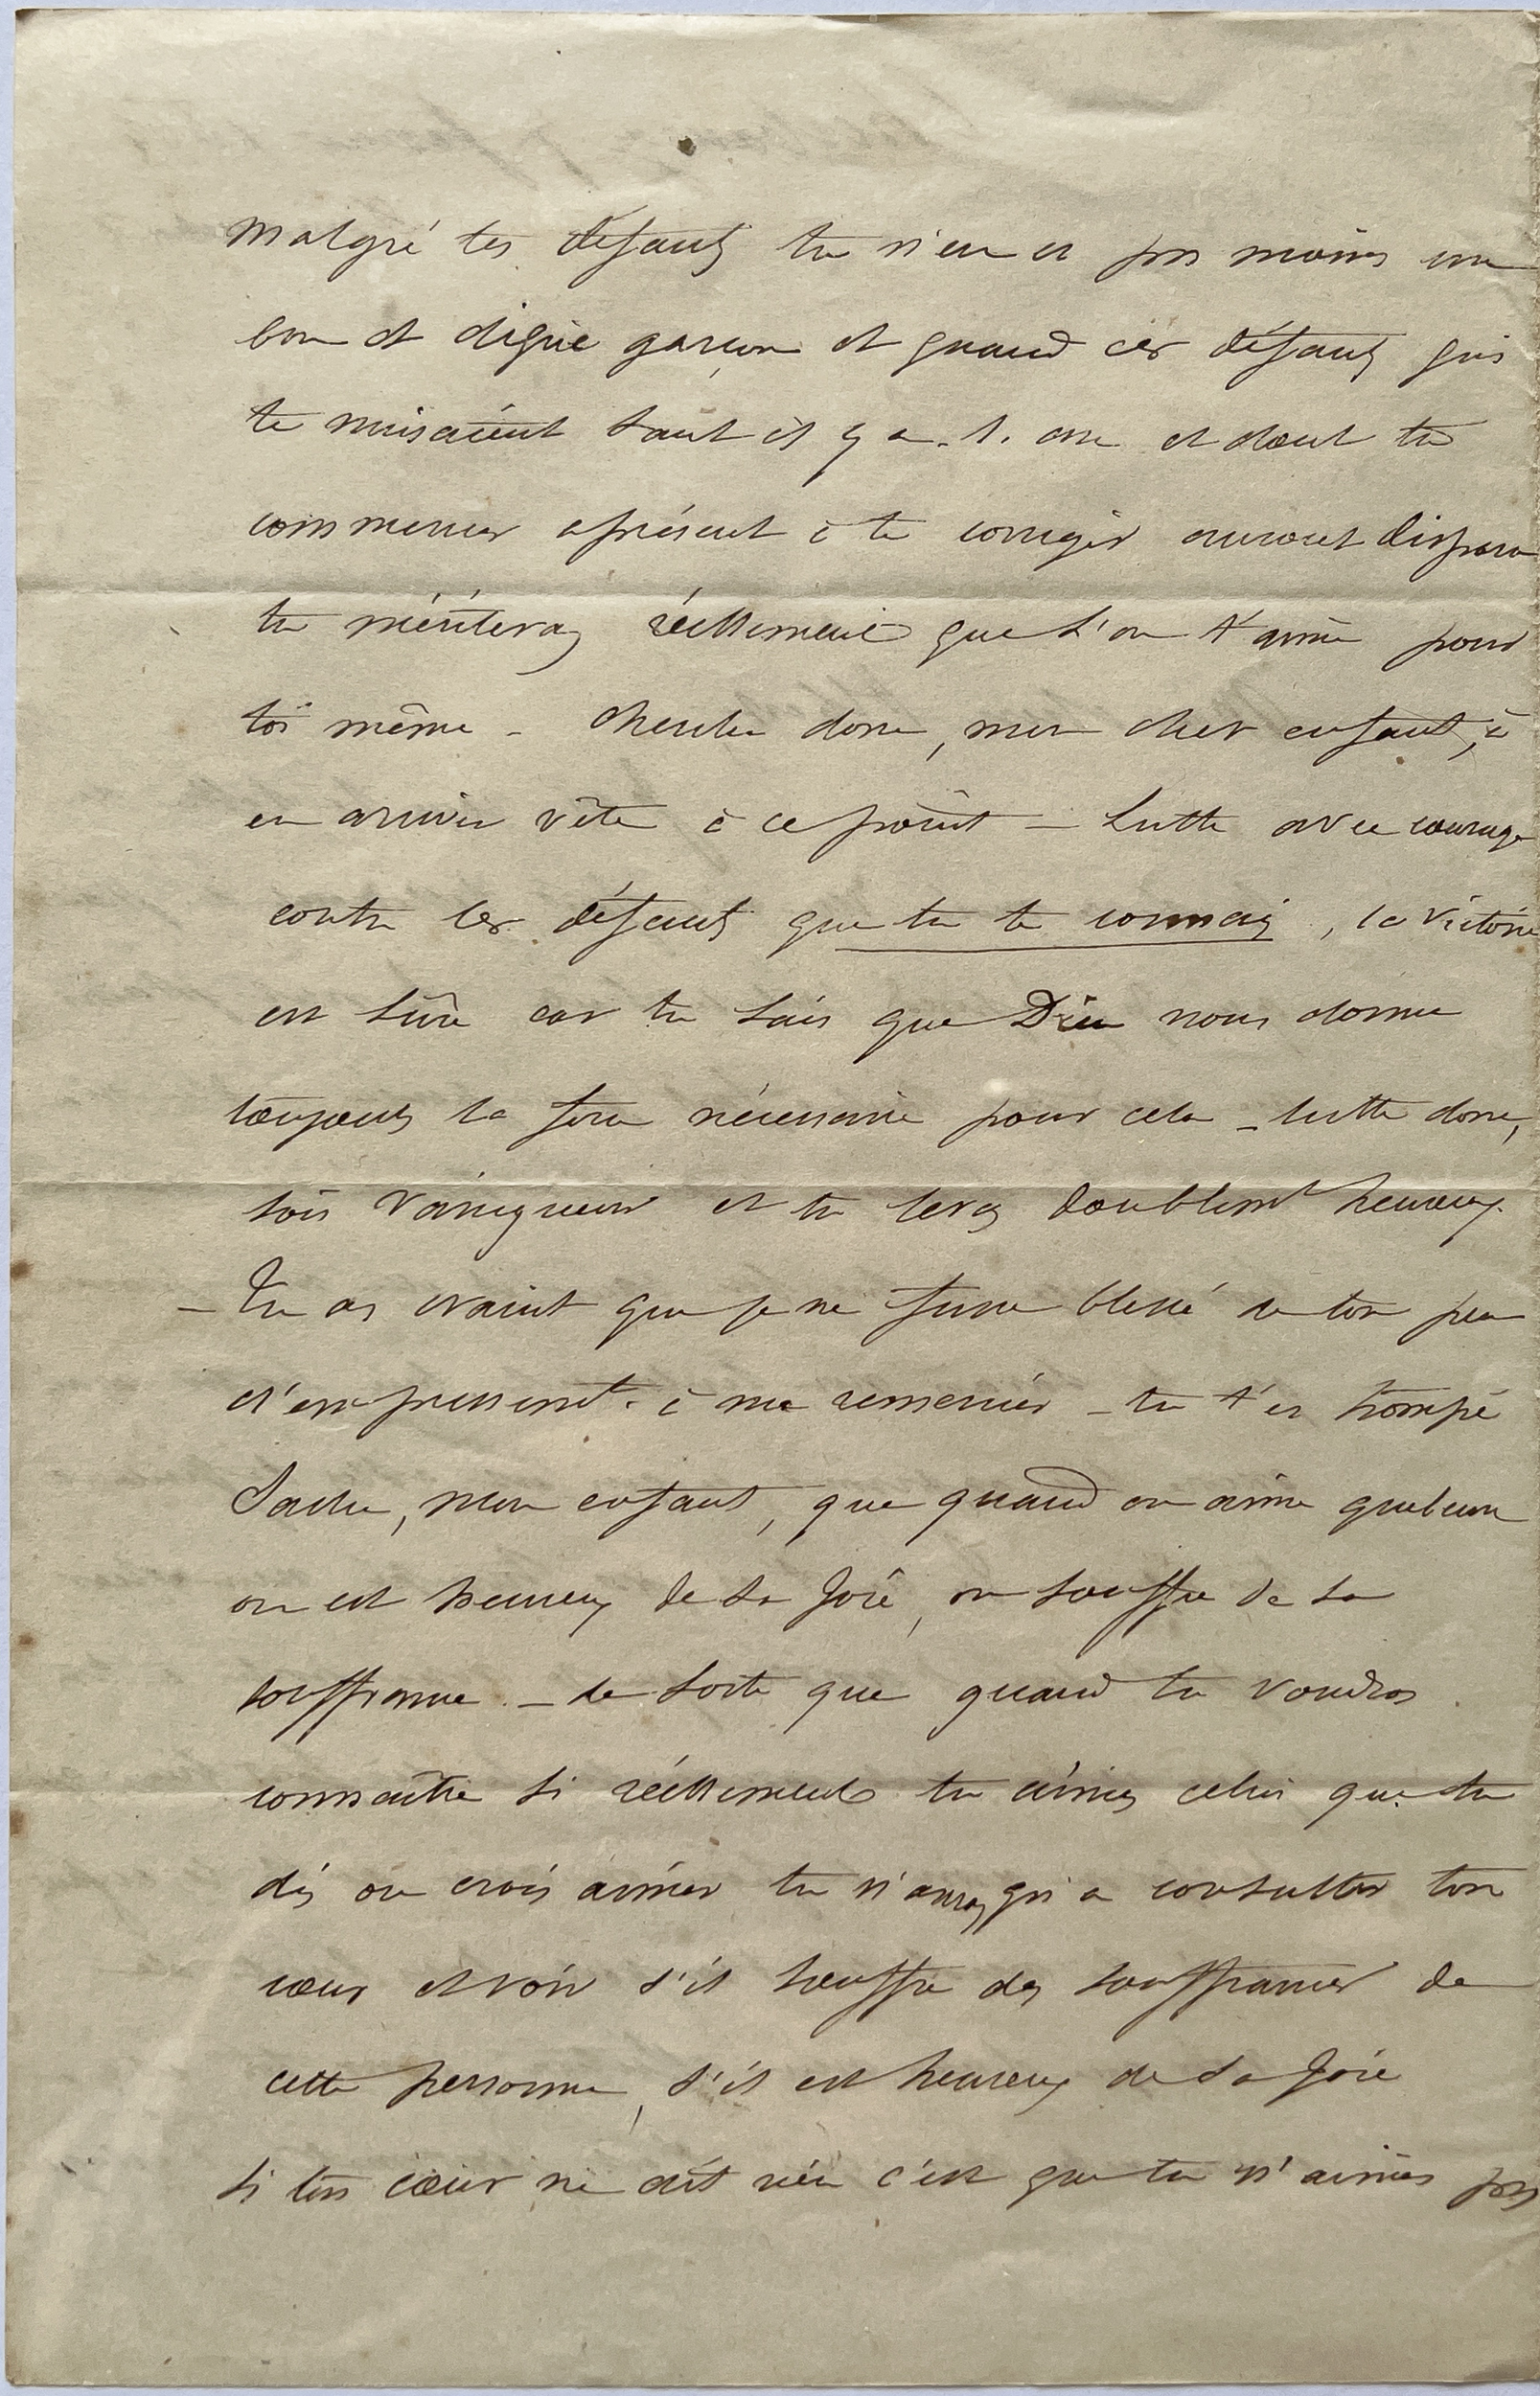 Malgré tes défauts tu n'en es pas moins un
bon et digne garçon et quand ces défauts qui
te nuisaient tant il y a 1. an et dont tu
commences aprésent à te corriger auront disparu
tu mériteras réellement que l'on t'aime pour
toi même - Cherche donc, mon cher enfant, à
en arriver vite à ce point - Lutte avec courage
contre les défauts que tu te connais, la victoire
est sûre car tu sais que Dieu nous donne
toujours la force nécessaire pour cela - lutte donc,
sois vainqueur et tu seras doublemt heureux.
- Tu as craint que je ne fusse blessé de ton peu
d'empressemt. à me remercier - tu t'es trompé
Sache, mon enfant, que quand on aime quelqu'un
on est heureux de sa joie, on souffre de sa
souffrance. - de sorte que quand tu voudras
connaître si réellement tu aimes celui que tu
dis ou crois aimer tu n'auras qu'a consulter ton
cœur et voir s'il souffre des souffrances de
cette personne, s'il est heureux de sa joie
Si ton cœur ne dit rien c'est que tu n'aimes pas